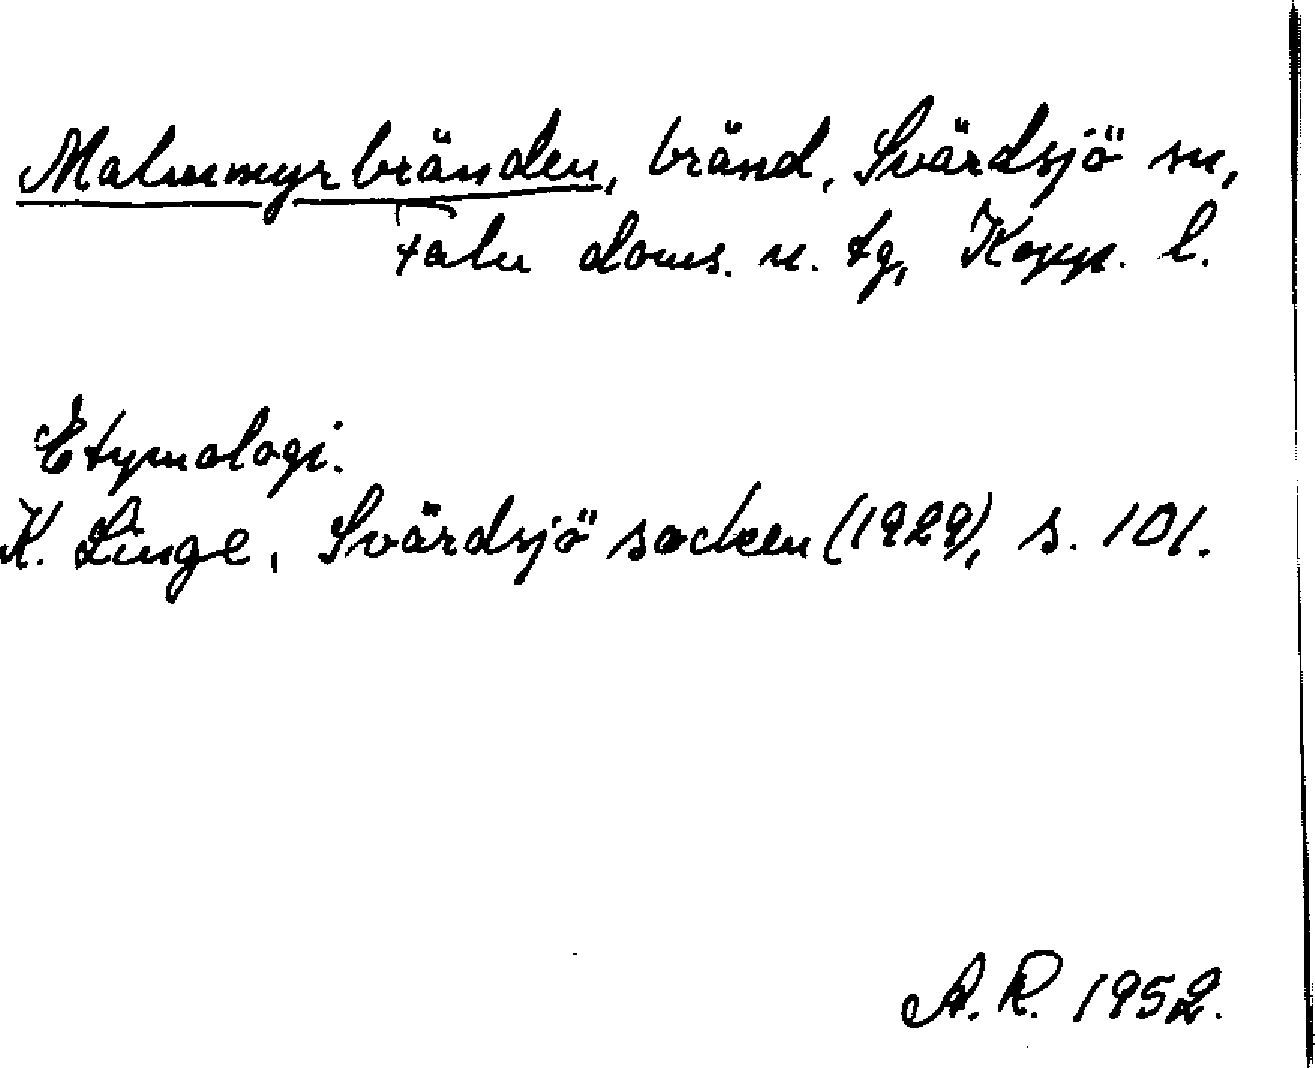 Malmmyrbränden, bränd, Svärdsjö sn,
Falu doms. n. tg, Kopp. l.
Etymologi.
K. Linge, Svärdsjö socken (1929), s. 101.
A. R. 1952.